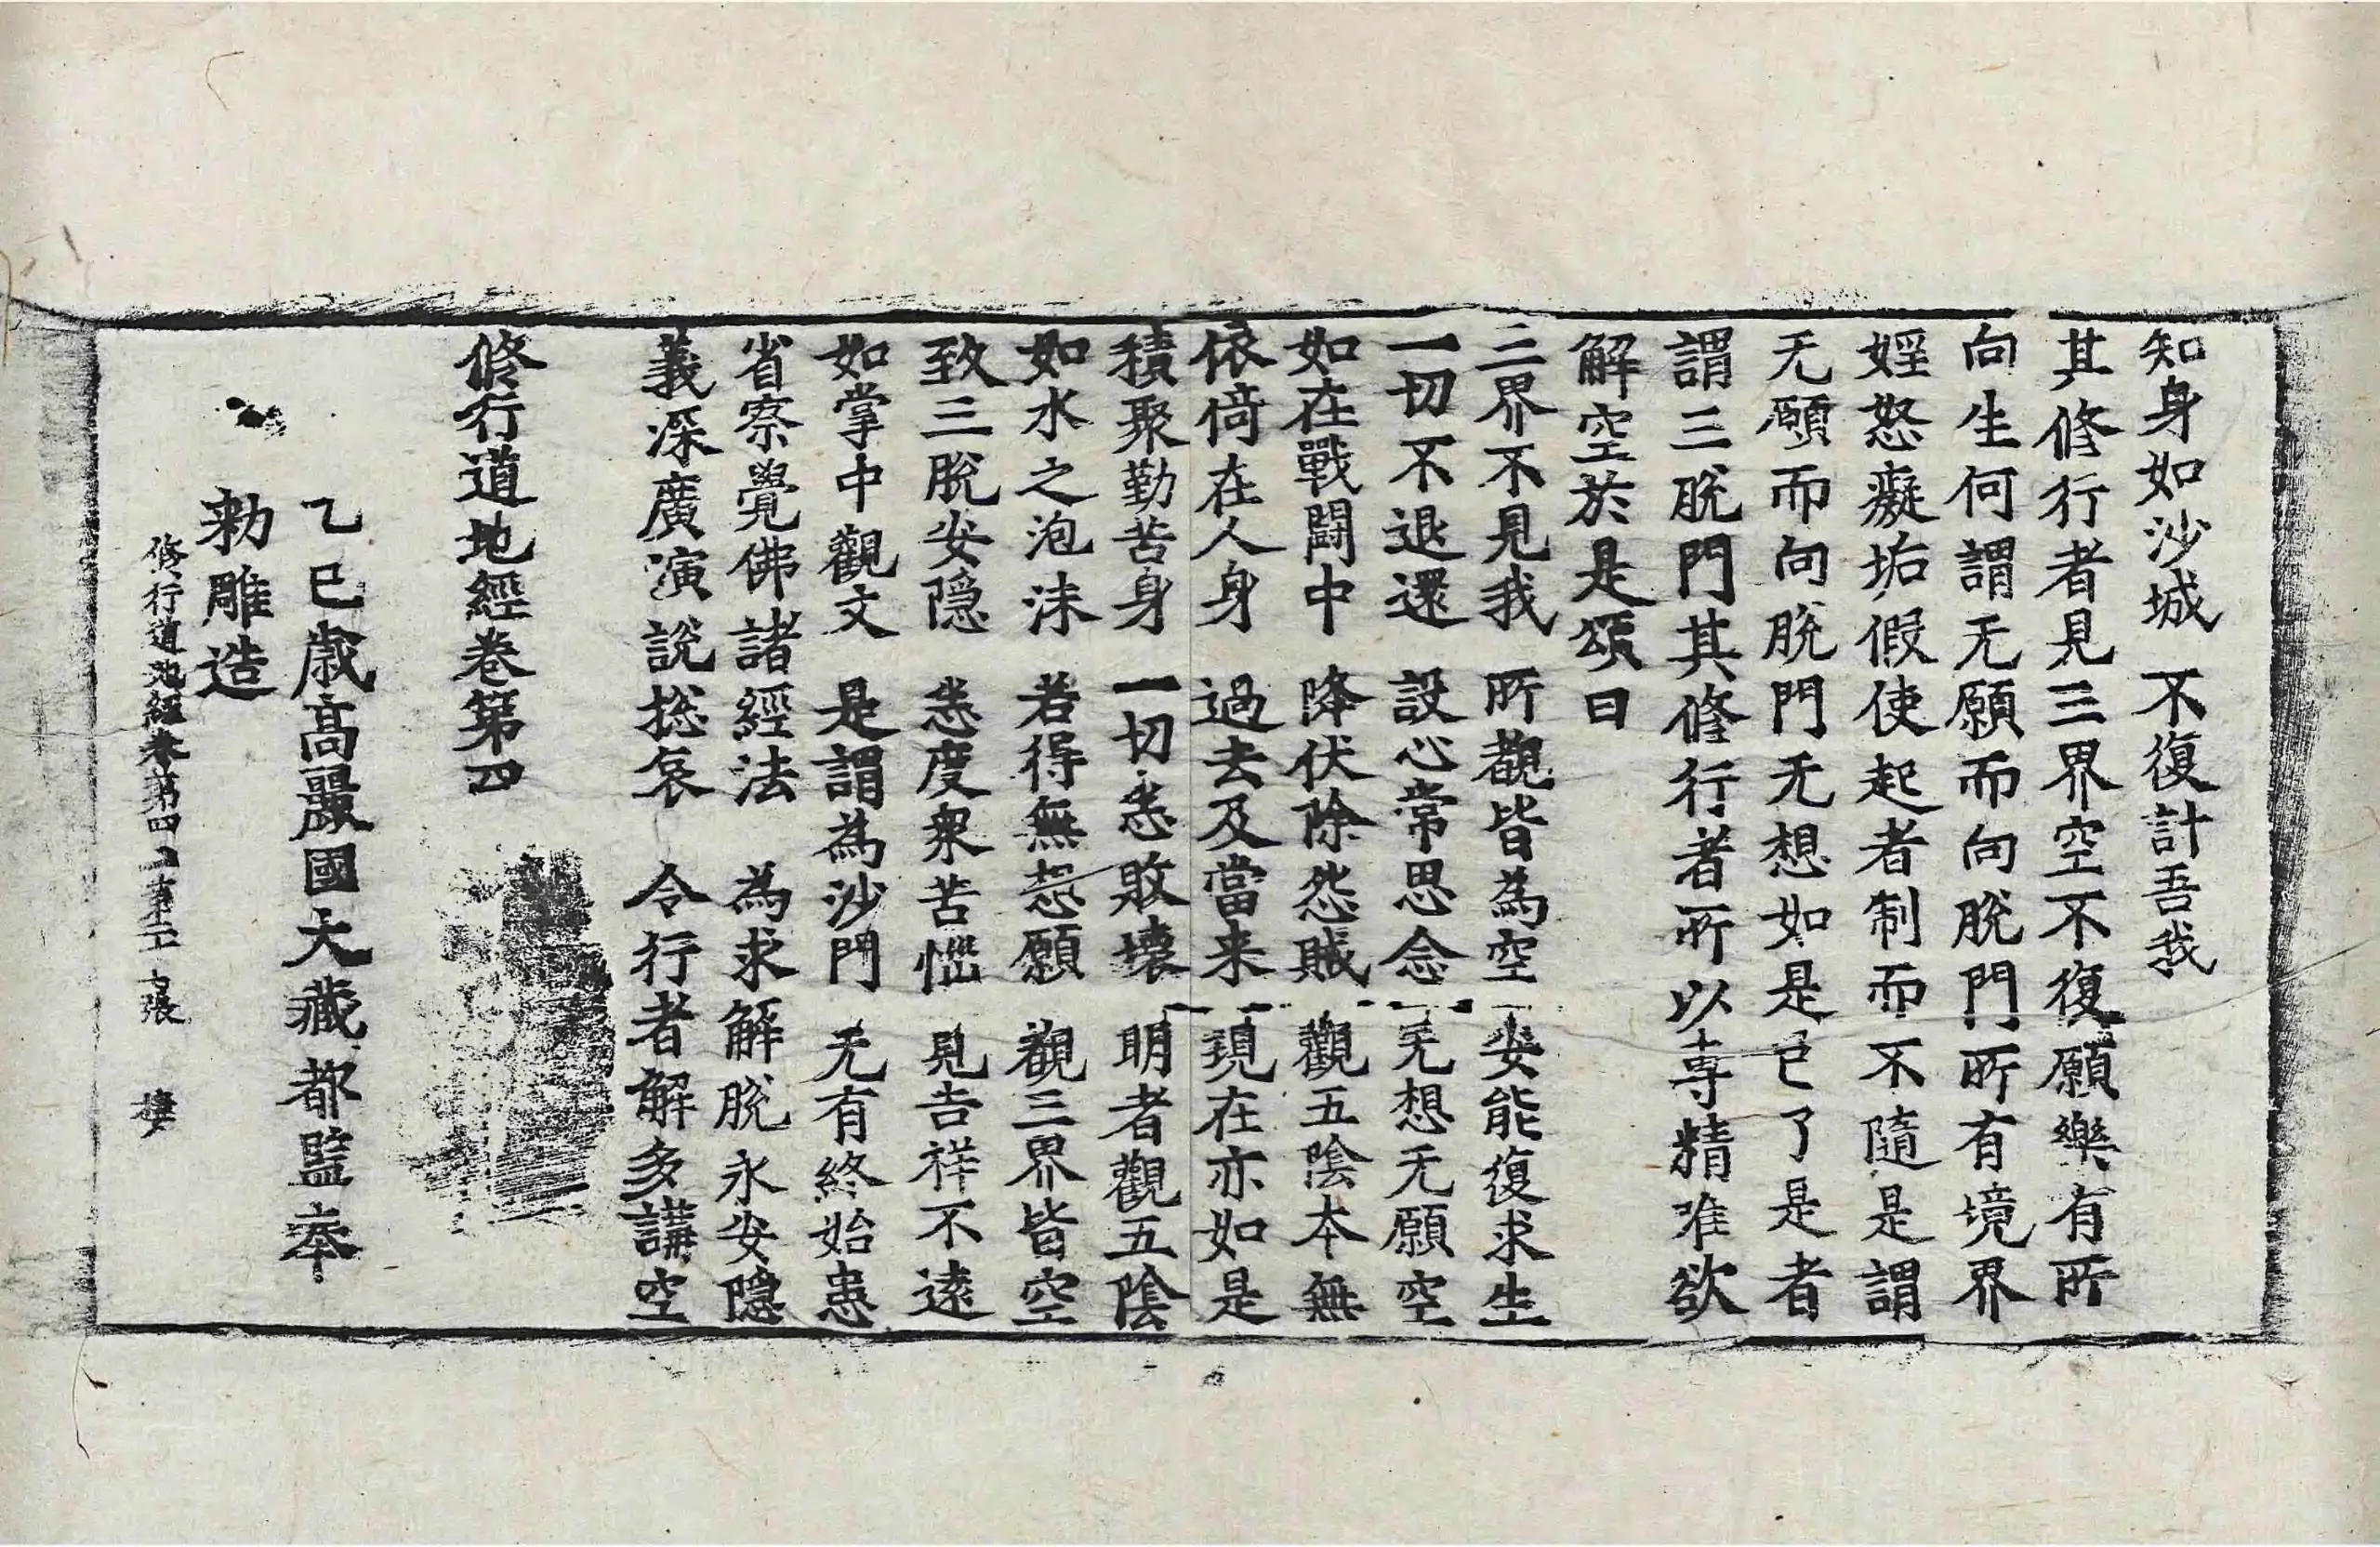 知身如沙城　不復計吾我
其修行者見三界空不復願樂有所
向生何謂无願而向脫門所有境界
婬怒癡垢假使起者制而不隨是謂
无願而向脫門无想如是已了是者
謂三脫門其修行者所以專精唯欲
解空於是頌曰
三界不見我　所觀皆為空　安能復求生
一切不退還　設心常思念　无想无願空
如在戰鬪中　降伏除怨賊　觀五陰本無
依倚在人身　過去及當来　現在亦如是
積聚勤苦身　一切悉敗壞　明者觀五陰
如水之泡沫　若得無想願　觀三界皆空
致三脫安隱　悉度衆苦惱　見吉祥不遠
如掌中觀文　是謂為沙門　无有終始患
省察覺佛諸經法　為求解脫永安隱
義深廣演說㧾哀　令行者解多講空
修行道地經卷第四
乙巳歲高麗國大藏都監奉
勑雕造
修行道地經卷第四　第二十七張　樓